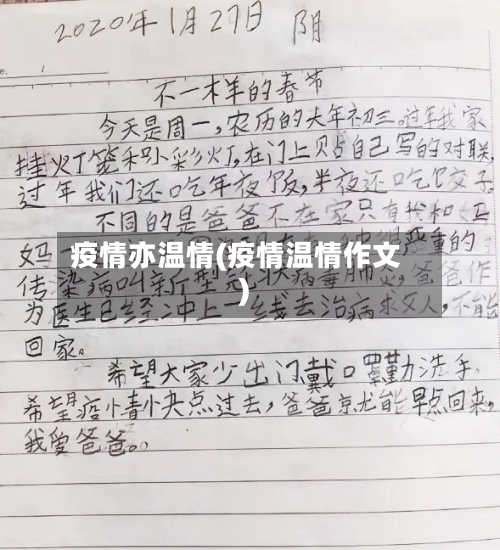 2020年1月27日 阴
不一样的春节
今天是周一,农历的大年初三。过年我家
挂火丁笼和小彩灯,在门上贴自己写的对联,
过年我们还吃年夜饭,半夜还吃饺子
不同的是爸爸不在家只有我和
妈 严重的
疫情亦温情(疫情温情作文
)
传染病叫新型冠状病毒肺炎,爸爸作
为医生已经冲上一线去治病求人,不能
回家。
希望大家少出门戴口罩勤洗手,
希望疫情快点过去,爸爸就能早点回来,
我爱爸爸。